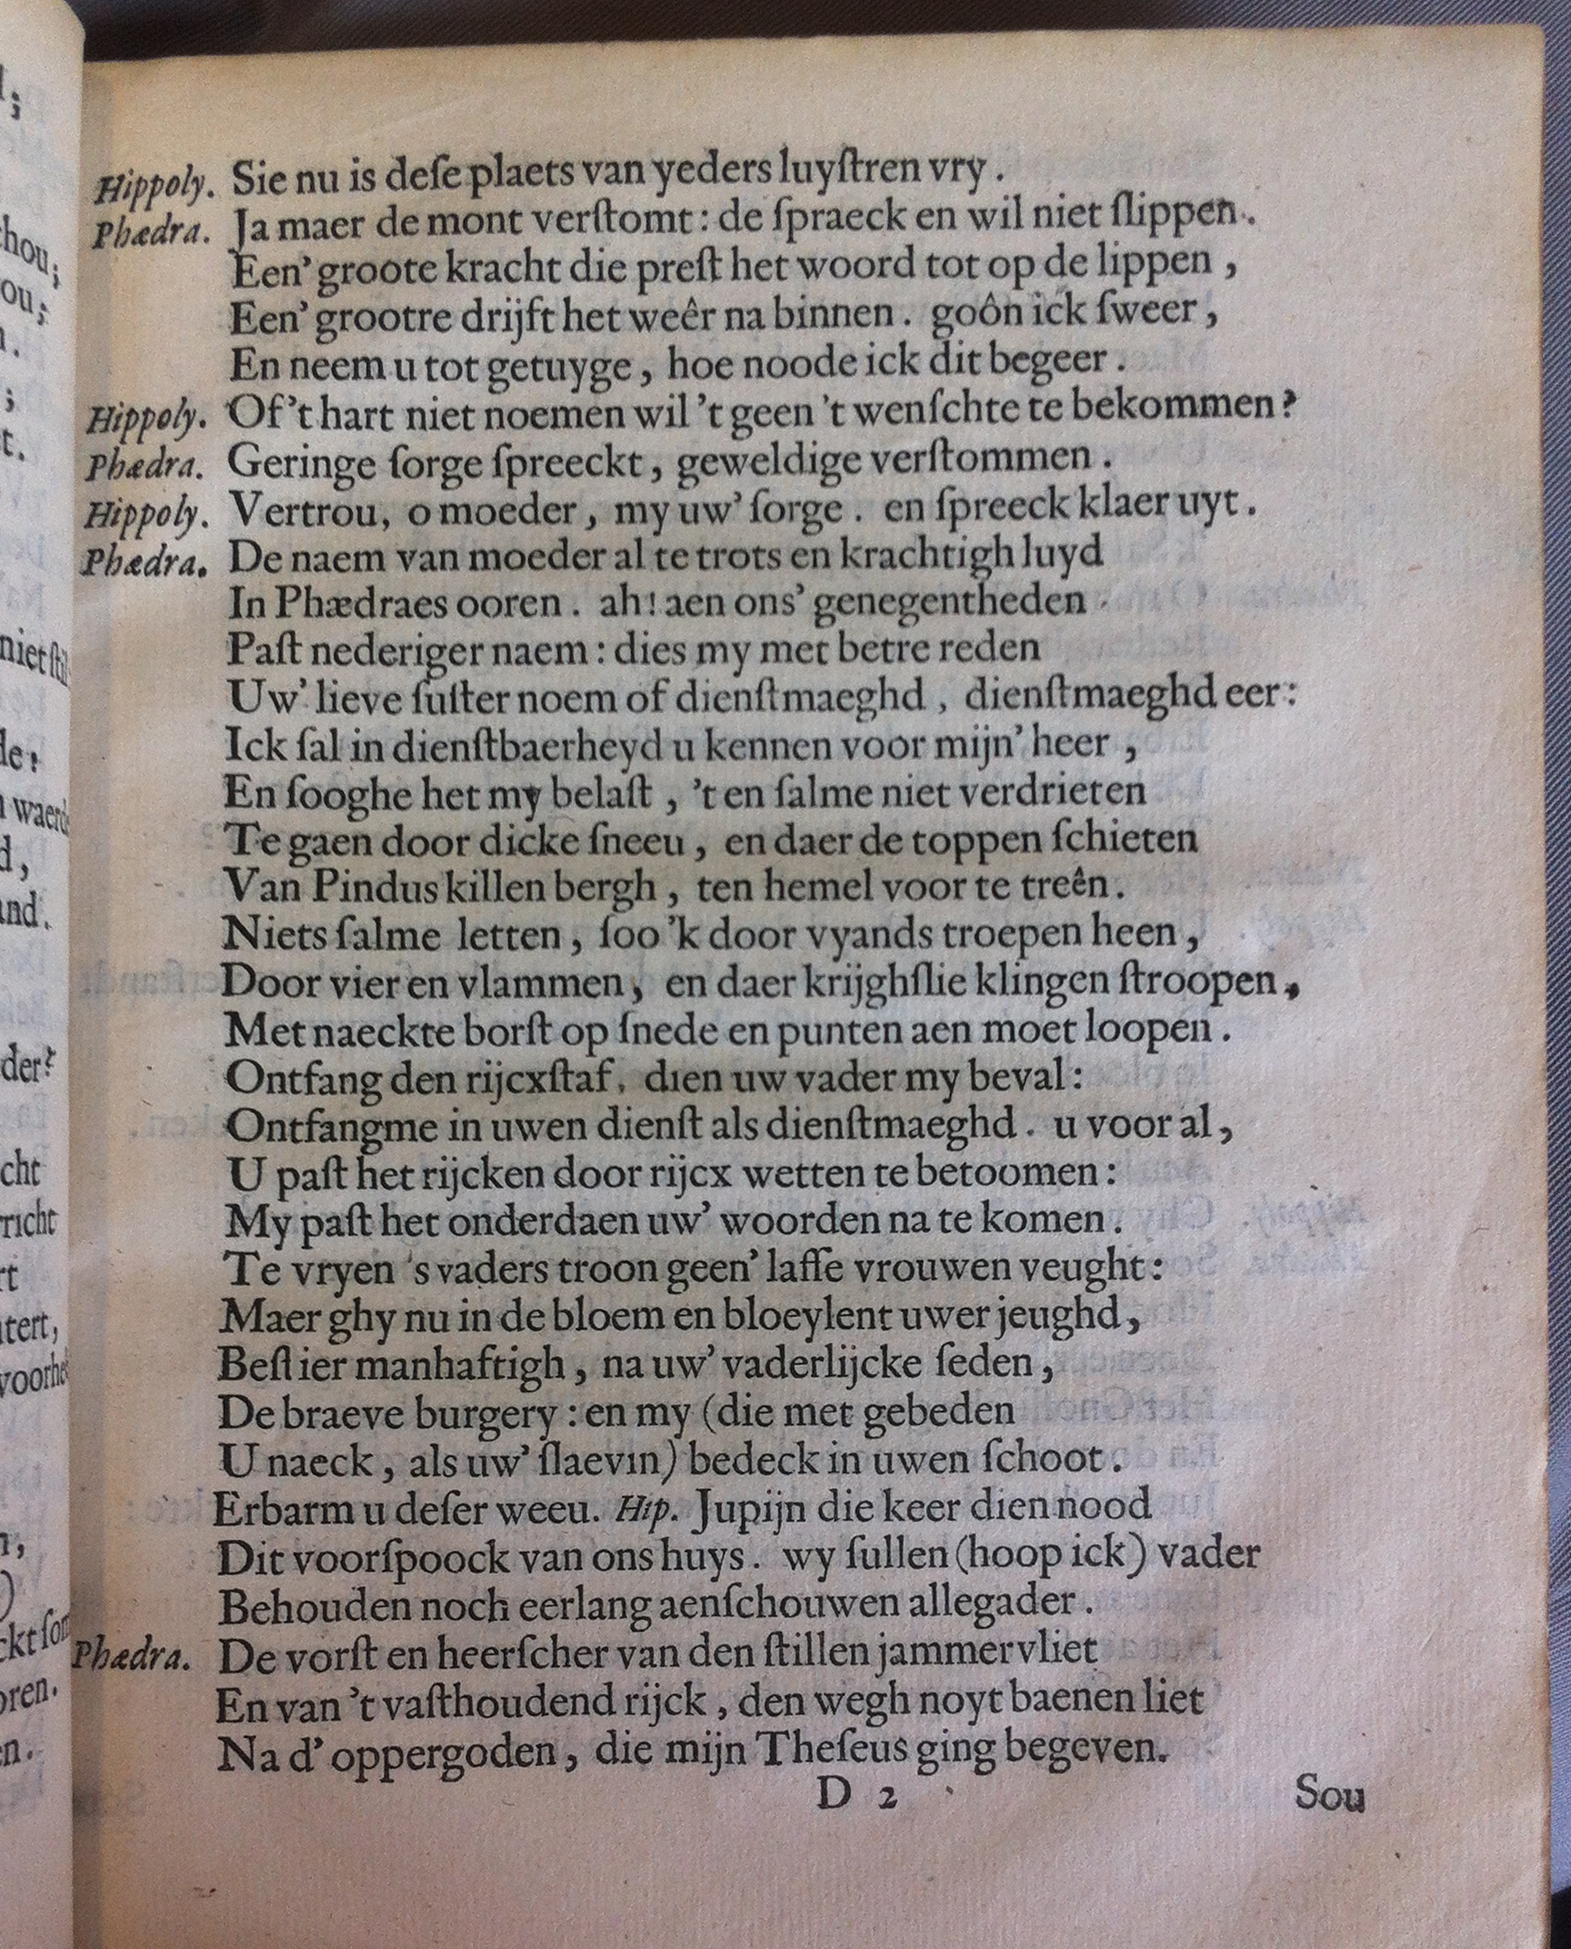 Hippoly. Sie nu is deſe plaets van yeders luyſtren vry.
Phædra. Ja maer de mont verſtomt: de ſpraeck en wil niet ſlippen.
Een' groote kracht die preſt het woord tot op de lippen,
Een' grootre drijft het weêr na binnen. goôn ick ſweer,
En neem u tot getuyge, hoe noode ick dit begeer.
Hippoly. Of 't hart niet noemen wil 't geen 't wenſchte te bekommen?
Phædra. Geringe ſorge ſpreeckt, geweldige verſtommen.
Hippoly. Vertrou, o moeder, my uw' ſorge. en ſpreeck klaer uyt.
Phædra. De naem van moeder al te trots en krachtigh luyd
In Phædraes ooren. ah! aen ons' genegentheden
Paſt nederiger naem: dies my met betre reden
Uw' lieve ſuſter noem of dienſtmaeghd, dienſtmaeghd eer:
Ick ſal in dienſtbaerheyd u kennen voor mijn' heer,
En ſooghe het my belaſt, 't en ſalme niet verdrieten
Te gaen door dicke ſneeu, en daer de toppen ſchieten
Van Pindus killen bergh, ten hemel voor te treên.
Niets ſalme letten, ſoo 'k door vyands troepen heen,
Door vier en vlammen, en daer krijghſlie klingen ſtroopen,
Met naeckte borſt op ſnede en punten aen moet loopen.
Ontfang den rijcxſtaf, dien uw vader my beval:
Ontfangme in uwen dienſt als dienſtmaeghd. u voor al,
U paſt het rijcken door rijcx wetten te betoomen:
My paſt het onderdaen uw' woorden na te komen.
Te vryen 's vaders troon geen' laffe vrouwen veught:
Maer ghy nu in de bloem en bloeylent uwer jeughd,
Beſtier manhaftigh, na uw' vaderlijcke ſeden,
De braeve burgery: en my (die met gebeden
U naeck, als uw' ſlaevin) bedeck in uwen ſchoot.
Erbarm u deſer weeu. Hip. Jupijn die keer dien nood
Dit voorſpoock van ons huys. wy ſullen (hoop ick) vader
Behouden noch eerlang aenſchouwen allegader.
Phædra. De vorſt en heerſcher van den ſtillen jammervliet
En van 't vaſthoudend rijck, den wegh noyt baenen liet
Na d' oppergoden, die mijn Theſeus ging begeven.
D 2
Sou